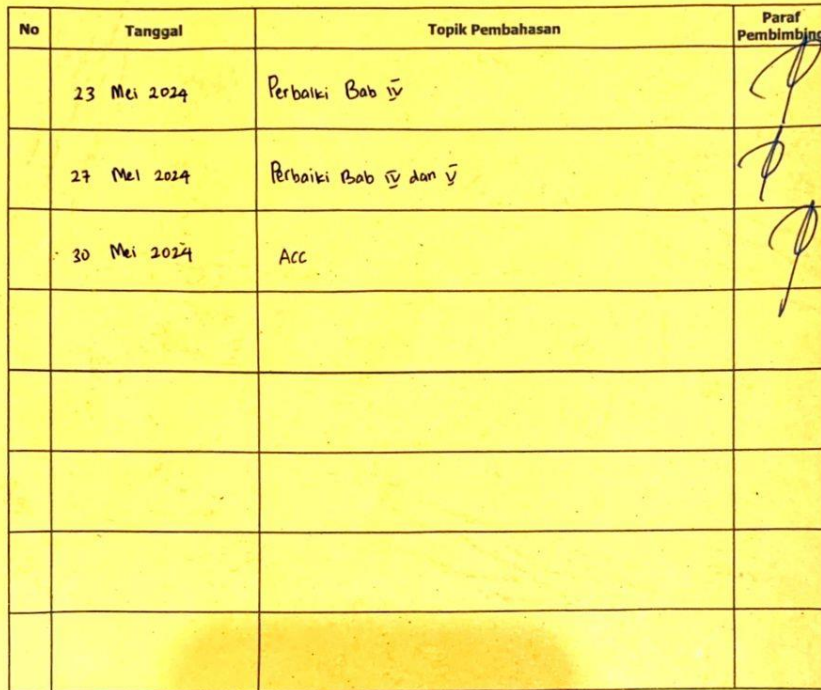 No Tanggal Topik Pembahasan Paraf Pembimbing
23 Mei 2024 Perbaiki Bab IV
27 Mei 2024 Perbaiki Bab IV dan V
30 Mei 2024 Acc